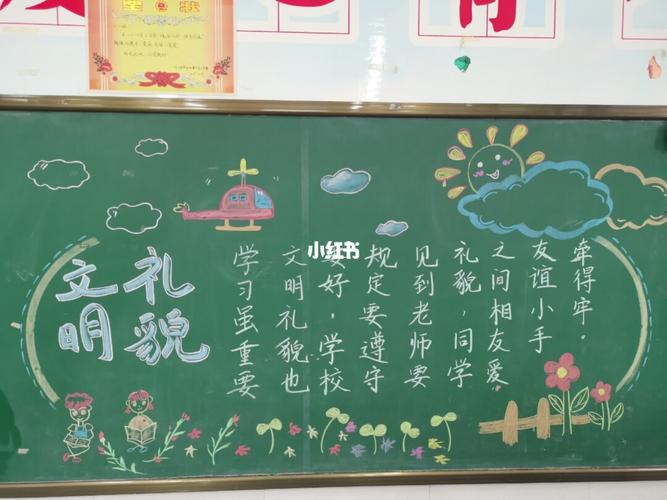 文明
礼貌
学习虽重要
文明礼貌也
要好，学校
规定要遵守
见到老师要
礼貌，同学
之间相友爱
友谊小手
牵得牢。
小红书